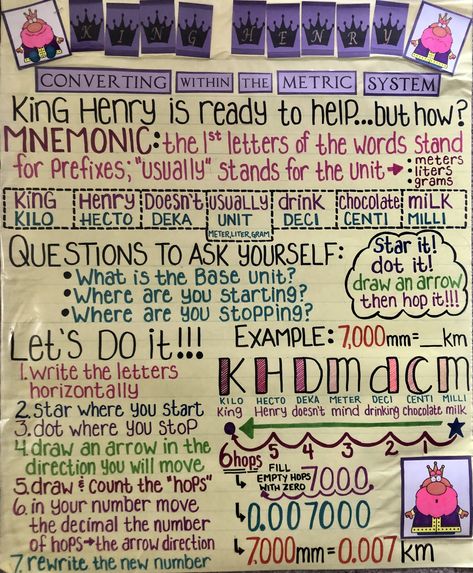 KING HENRY
CONVERTING WITHIN THE METRIC SYSTEM
King Henry is ready to help...but how?
MNEMONIC: the 1st letters of the words stand
for prefixes; "usually" stands for the unit →
• meters
• liters
• grams
King Henry Doesn't usually drink chocolate milk
KILO HECTO DEKA UNIT DECI CENTI MILLI
METER, LITER, GRAM
QUESTIONS TO ASK YOURSELF:
• What is the Base unit?
• Where are you starting?
• Where are you stopping?
Star it!
dot it!
draw an arrow
then hop it!!!
LET'S DO IT!!!
1. Write the letters
horizontally
2. star where you start
3. dot where you stop
4. draw an arrow in the
direction you will move
5. draw & count the "hops"
6. in your number move
the decimal the number
of hops → the arrow direction
7. rewrite the new number
EXAMPLE: 7,000mm = __km
K H D m d c m
KILO HECTO DEKA METER DECI CENTI MILLI
King Henry doesn't mind drinking chocolate milk
6 5 4 3 2 1
6hops
FILL
EMPTY HOPS
WITH ZERO
7000.
↳ 0.007000
↳ 7,000mm = 0.007 km